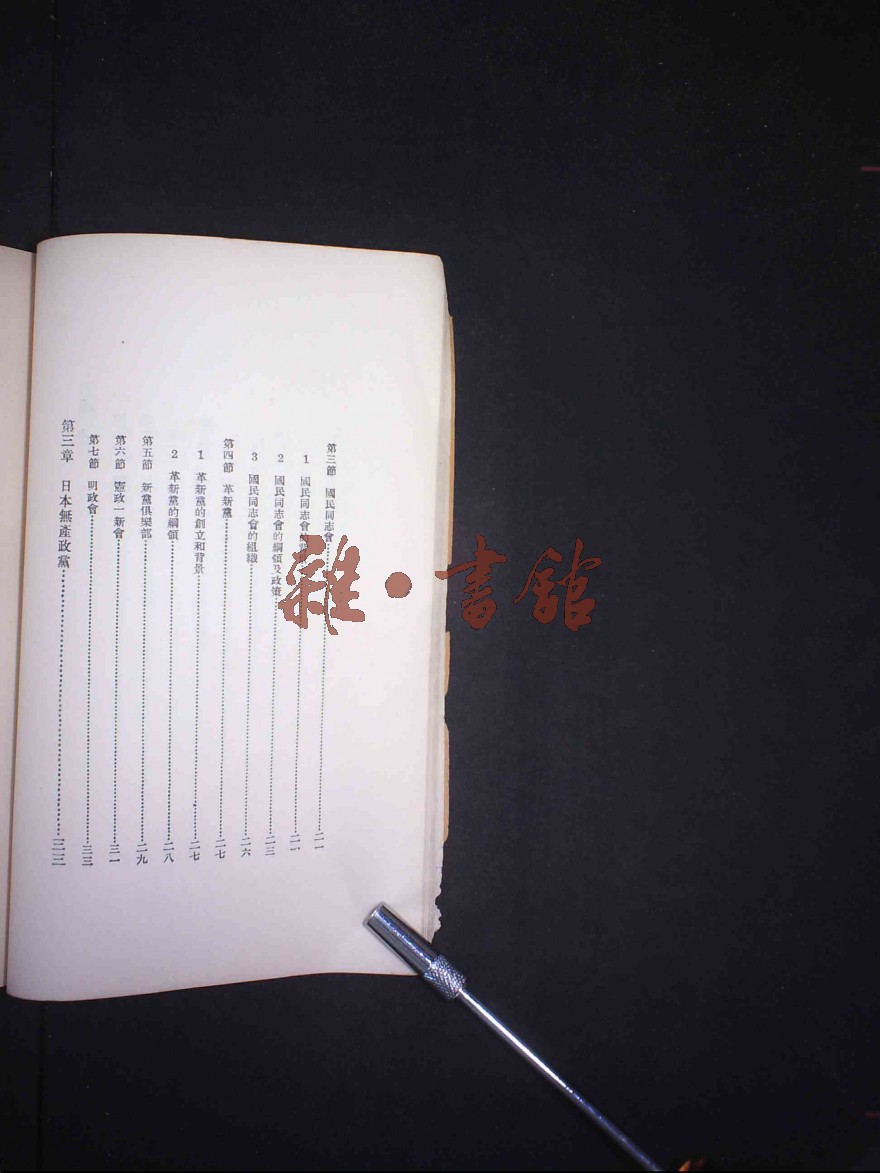 第三節　國民同志會……二一
1　國民同志會的背景……二一
2　國民同志會的綱領及政策……二三
3　國民同志會的組織……二六
第四節　革新黨……二七
1　革新黨的創立和背景……二七
2　革新黨的綱領……二八
第五節　新黨俱樂部……二九
第六節　憲政一新會……三一
第七節　明政會……三三
第三章　日本無產政黨……三三
雜·書館